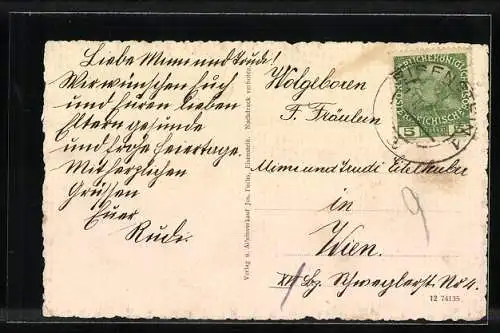 Liebe Mimi und Trude!
Wir wünschen Euch
und Euren lieben
Eltern gesunde
und frohe Feiertage.
Mit herzlichen
Grüssen
Euer
Rudi.
Nachdruck verboten.
Verlag u. Alleinverkauf Jos. Fuchs, Eisenerz.
Wolgeboren
F. Fräulein
Mimi und Trudi
in
Wien.
XV Bz. Schweglerst. No 4.
12 74135
5 5